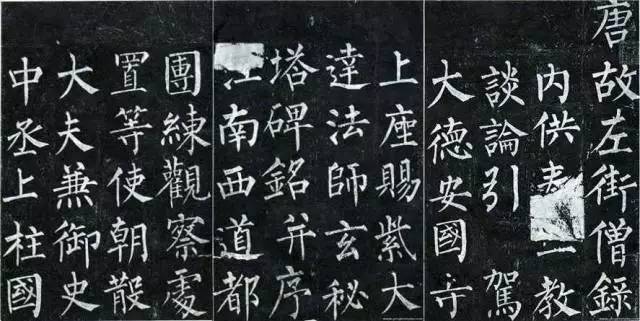 唐故左街僧錄
內供奉教
談論引駕
大德安國寺
上座賜紫大
達法師玄秘
塔碑銘并序
江南西道都
團練觀察處
置等使朝散
大夫兼御史
中丞上柱國